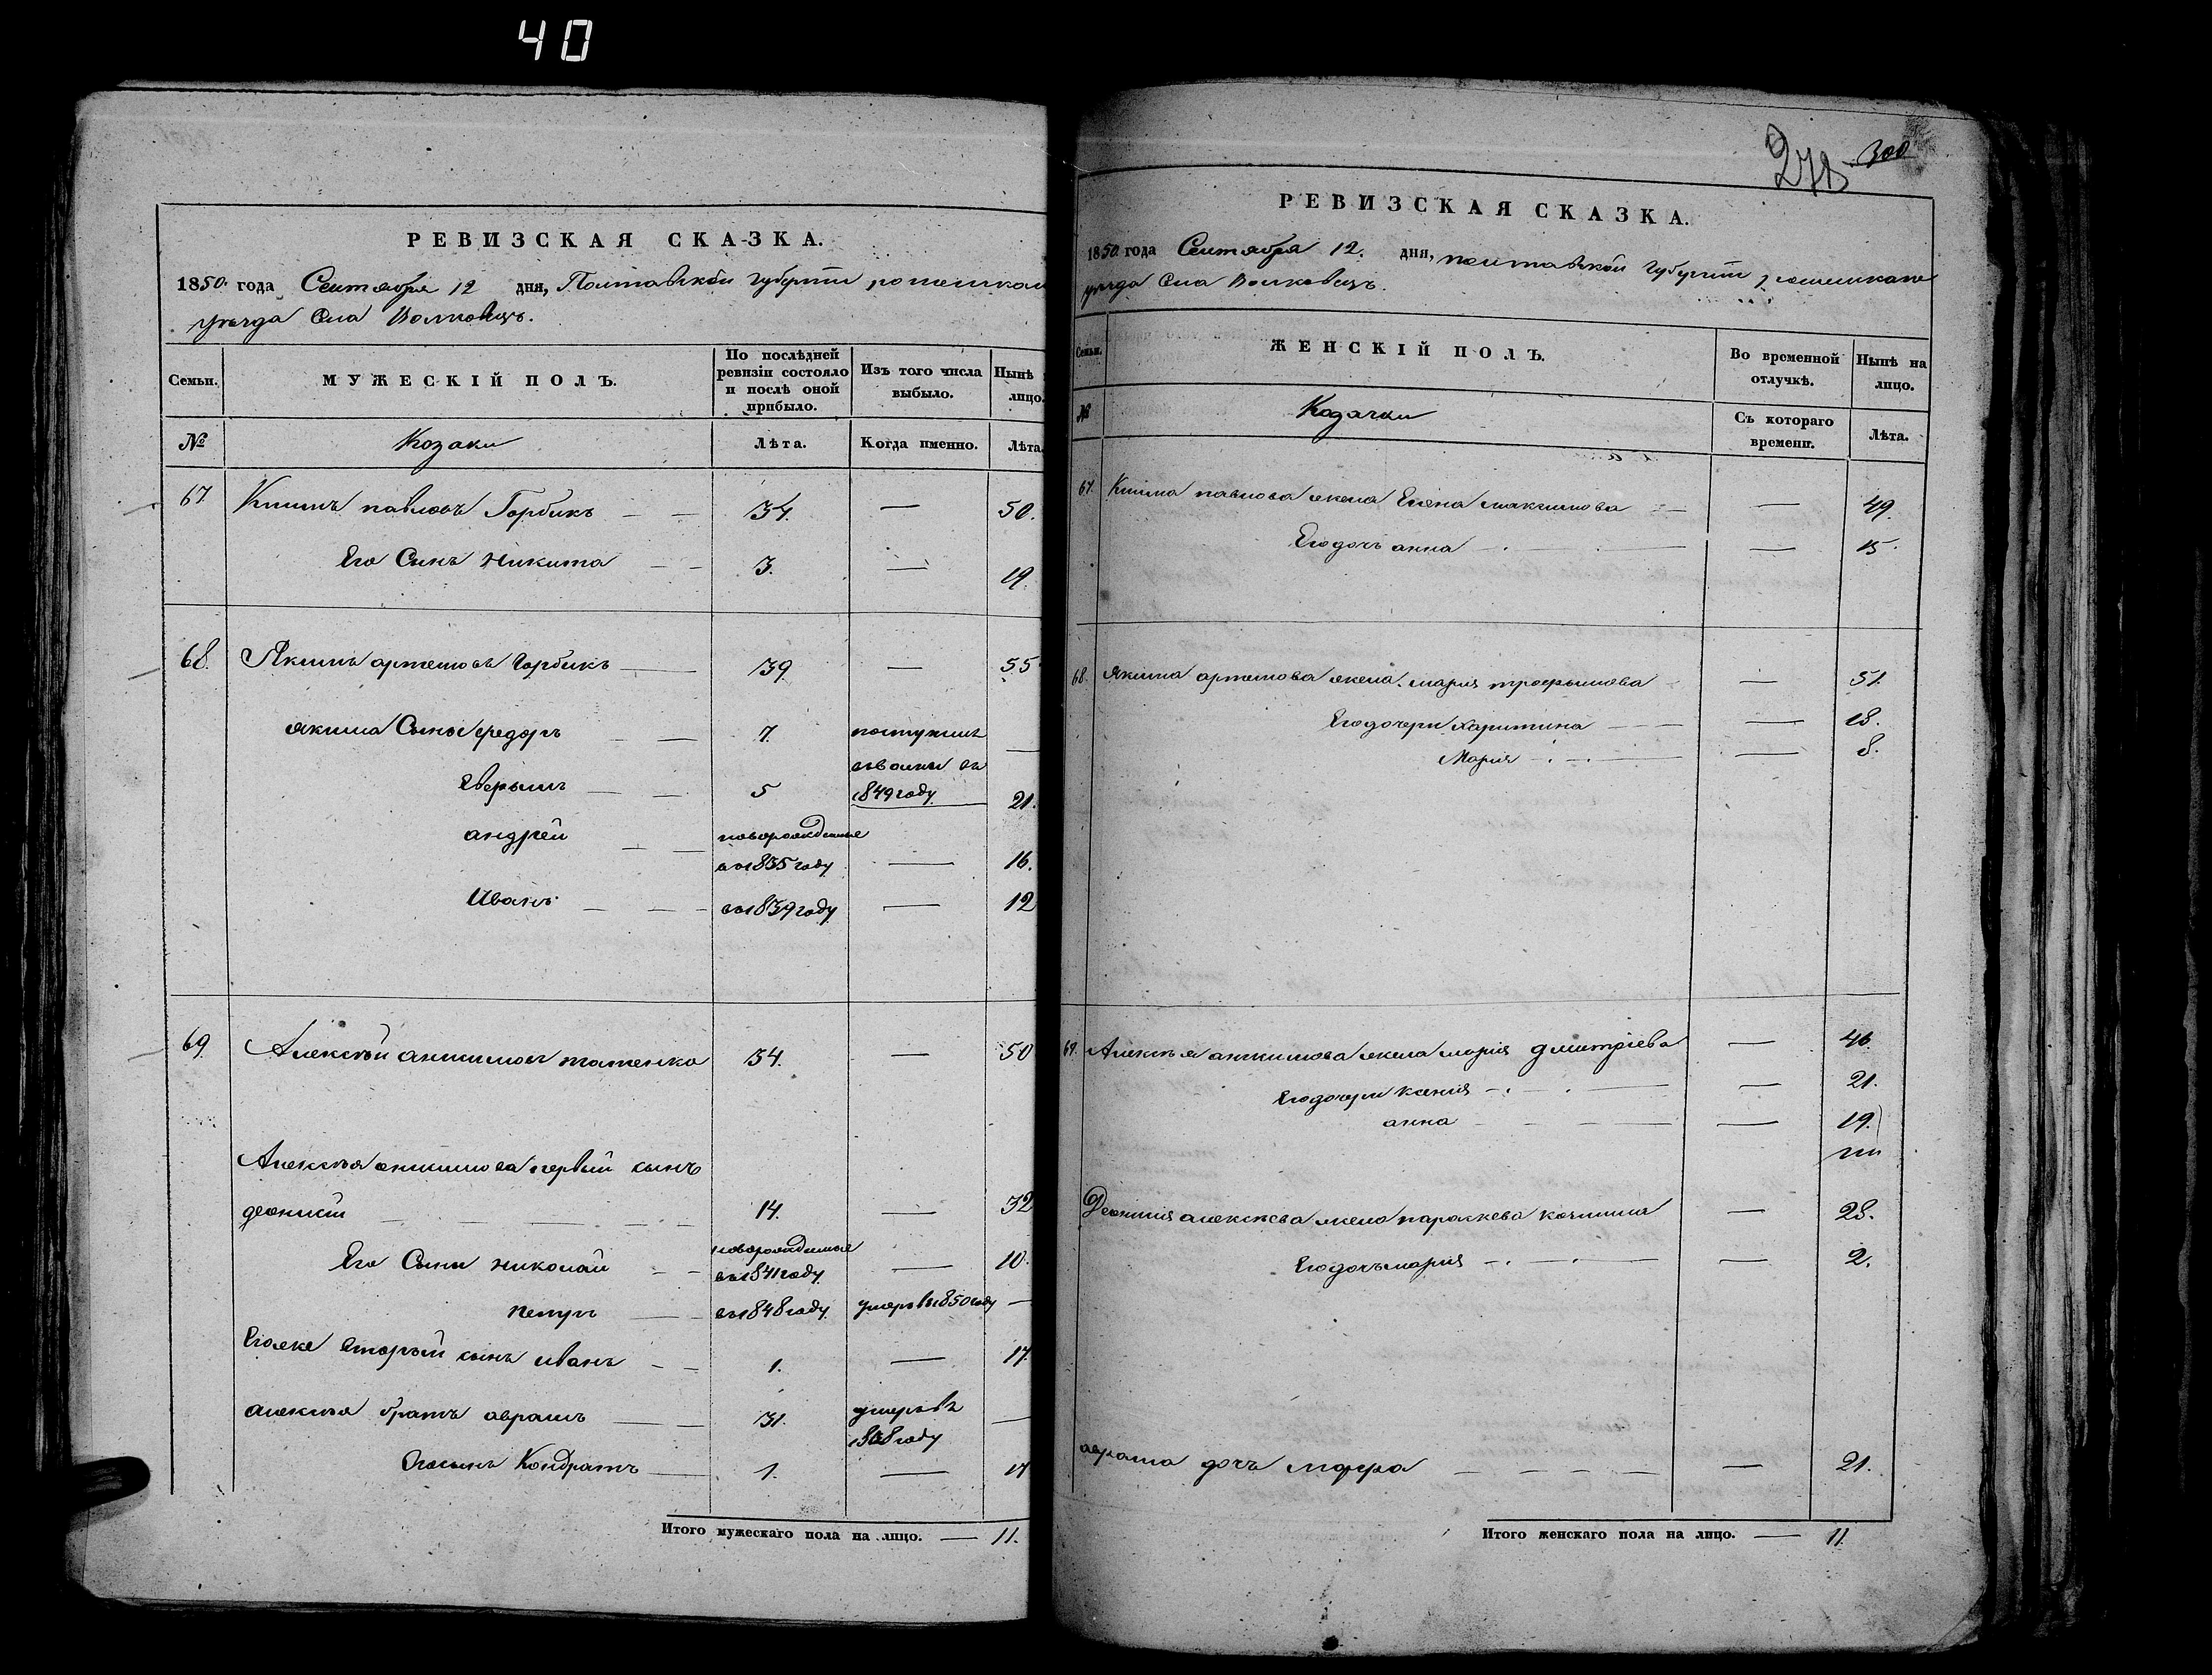 40
РЕВИЗСКАЯ СКАЗКА.
1850 года Сентября 12 дня, Полтавской Губернии роменскаго
уезда Села Волковецъ.
Семьи.
МУЖЕСКІЙ ПОЛЪ.
По послѣдней ревизіи состояло и послѣ оной прибыло.
Изъ того числа выбыло.
Нынѣ
лицо.
№
Козаки
Лѣта.
Когда именно.
Лѣта.
67 Климъ павловъ Горбикъ 34. — 50.
Его Сынъ Никита 3. — 19.
68. Якимъ артемовъ Горбикъ 39 — 55
якима Сыны федоръ 7. поступилъ —
въ 1849 году
Аверьянъ 5 21.
андрей новорожденные
въ 1835 году — 16.
Иванъ въ 1839 году — 12
69. Алексѣй анкимовъ 34. — 50
Алексѣя анкимова первый сынъ
деонисій 14. — 32
Его Сыны николай новорожденные
въ 1841 году — 10.
петръ въ 1848 году умеръ въ 1850 году —
Егоже вторый сынъ иванъ 1. — 17.
алексѣя братъ аврамъ 31. умеръ въ
году —
Егосынъ Кондратъ 1. — 17
Итого мужескаго пола на лицо. — 11.
278 300
РЕВИЗСКАЯ СКАЗКА.
1850 года Сентября 12. дня, полтавской Губерніи роменскаго
уезда Села Волковецъ.
Семьи.
ЖЕНСКІЙ ПОЛЪ.
Во временной отлучкѣ.
Нынѣ на лицо.
№
Козачки
Съ котораго времени.
Лѣта.
67. Клима павлова жена Елена максимова — 49.
Его дочь анна — 15.
68. Якима артемова жена мария трофимова — 51.
Его дочери харитина — 18.
Мария — 8.
69. Алексѣя анкимова жена мария дмитріева — 46.
Его дочери ксения — 21.
анна — 19.
Деонисія алексѣева жена параскева — 28.
Его дочь мария — 2.
аврама дочь — 21.
Итого женскаго пола на лицо. — 11.